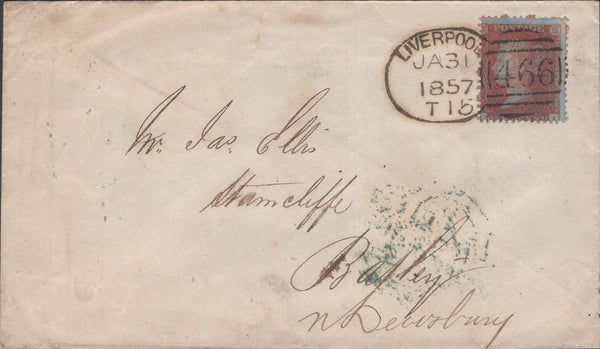 LIVERPOOL
JA31
1857
T15
POSTAGE
466
Mr. Jas. Ellis
Stamcliffe
Batley
n Dewsbury